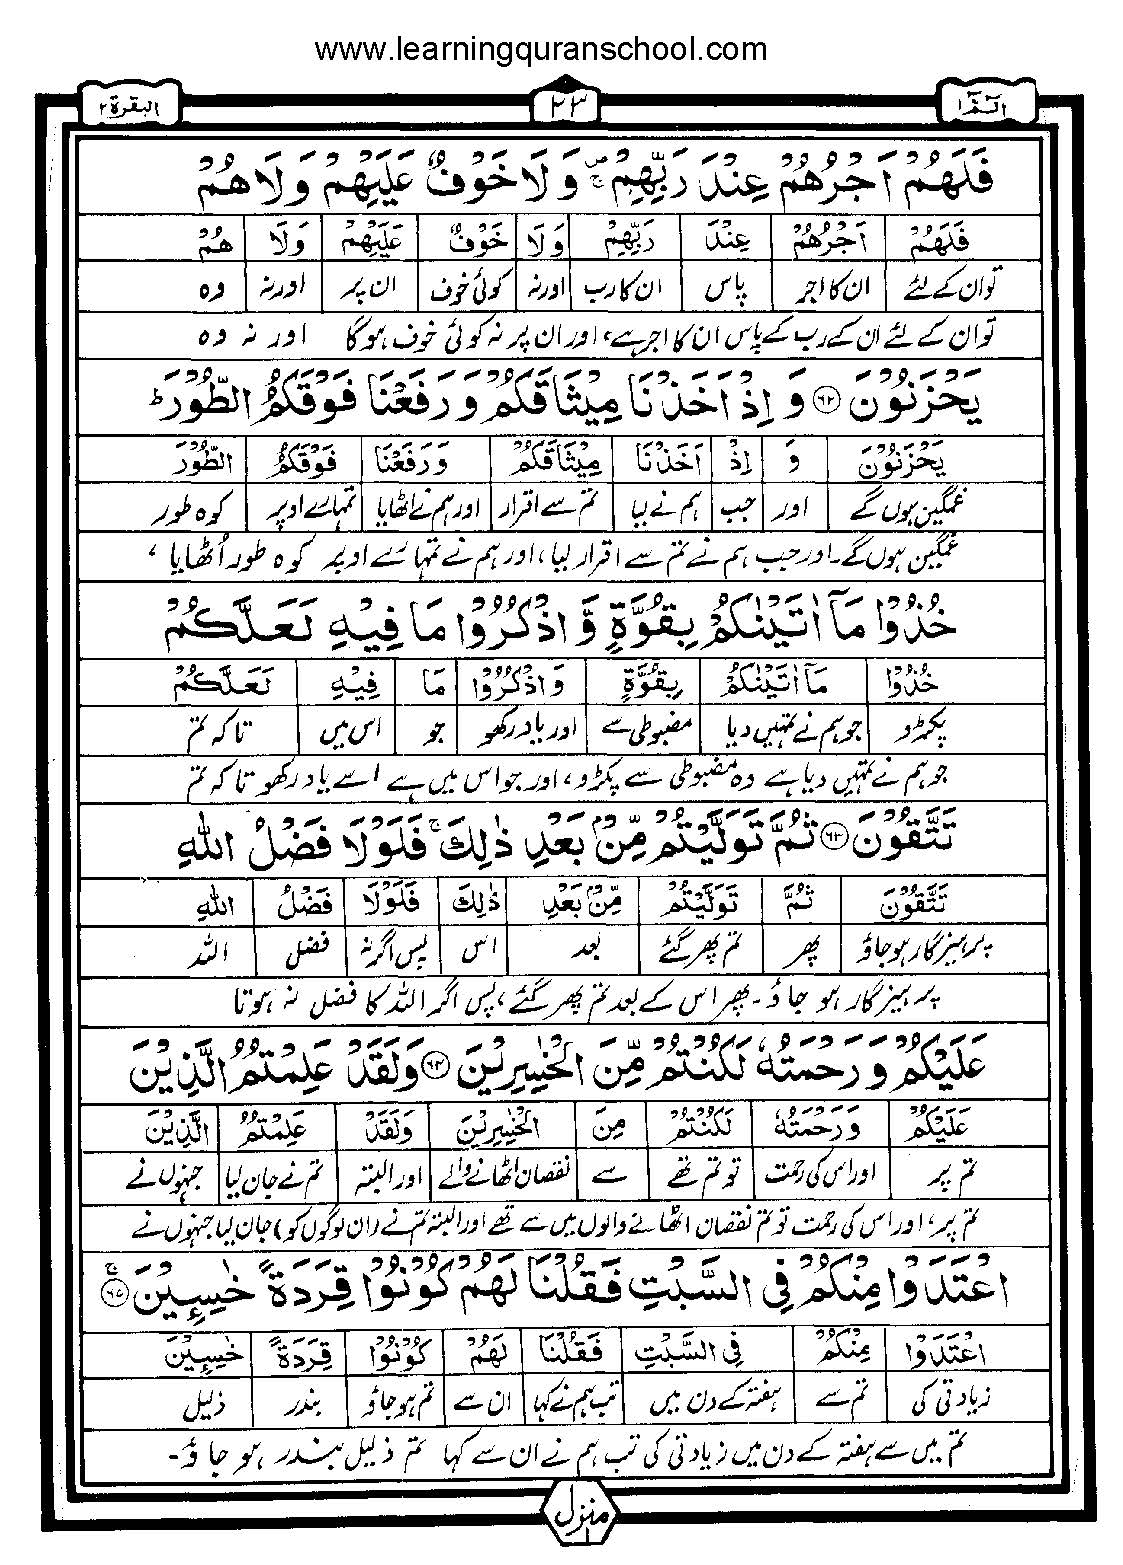 www.learningquranschool.com
الٓمّٓ ١ ٢٣ البقرة ٢
فَلَهُمْ اَجْرُهُمْ عِنْدَ رَبِّهِمْ ۪ۚ وَلَا خَوْفٌ عَلَيْهِمْ وَلَا هُمْ
فَلَهُمْ اَجْرُهُمْ عِنْدَ رَبِّهِمْ وَلَا خَوْفٌ عَلَيْهِمْ وَلَا هُمْ
توان کے لئے ان کا اجر پاس ان کا رب اور نہ کوئی خوف ان پر اور نہ وہ
توان کے لئے ان کے رب کے پاس ان کا اجر ہے، اور ان پر نہ کوئی خوف ہوگا اور نہ وہ
يَحْزَنُوْنَ ﴿٦٢﴾ وَ اِذْ اَخَذْنَا مِيْثَاقَكُمْ وَرَفَعْنَا فَوْقَكُمُ الطُّوْرَ ؕ
يَحْزَنُوْنَ وَ اِذْ اَخَذْنَا مِيْثَاقَكُمْ وَرَفَعْنَا فَوْقَكُمُ الطُّوْرَ
غمگین ہوں گے اور جب ہم نے لیا تم سے اقرار اور ہم نے اٹھایا تمہارے اوپر کوہ طور
غمگین ہوں گے۔ اور جب ہم نے تم سے اقرار لیا، اور ہم نے تمہارے اوپر کوہ طور اُٹھایا،
خُذُوْا مَآ اٰتَيْنٰكُمْ بِقُوَّةٍ وَّ اذْكُرُوْا مَا فِيْهِ لَعَلَّكُمْ
خُذُوْا مَآ اٰتَيْنٰكُمْ بِقُوَّةٍ وَ اذْكُرُوْا مَا فِيْهِ لَعَلَّكُمْ
پکڑو جو ہم نے تمہیں دیا مضبوطی سے اور یاد رکھو جو اس میں تاکہ تم
جو ہم نے تمہیں دیا ہے وہ مضبوطی سے پکڑو، اور جو اس میں ہے اسے یاد رکھو تاکہ تم
تَتَّقُوْنَ ﴿٦٣﴾ ثُمَّ تَوَلَّيْتُمْ مِّنْۢ بَعْدِ ذٰلِكَ ۚ فَلَوْلَا فَضْلُ اللّٰهِ
تَتَّقُوْنَ ثُمَّ تَوَلَّيْتُمْ مِّنْۢ بَعْدِ ذٰلِكَ فَلَوْلَا فَضْلُ اللّٰهِ
پرہیزگار ہو جاؤ پھر تم پھر گئے بعد اس پس اگر نہ فضل اللہ
پرہیزگار ہو جاؤ۔ پھر اس کے بعد تم پھر گئے، پس اگر اللہ کا فضل نہ ہوتا
عَلَيْكُمْ وَرَحْمَتُهٗ لَكُنْتُمْ مِّنَ الْخٰسِرِيْنَ ﴿٦٤﴾ وَلَقَدْ عَلِمْتُمُ الَّذِيْنَ
عَلَيْكُمْ وَرَحْمَتُهٗ لَكُنْتُمْ مِنَ الْخٰسِرِيْنَ وَلَقَدْ عَلِمْتُمُ الَّذِيْنَ
تم پر اور اس کی رحمت تو تم تھے سے نقصان اٹھانے والے اور البتہ تم نے جان لیا جنہوں نے
تم پر، اور اس کی رحمت تو تم نقصان اٹھانے والوں میں سے تھے اور البتہ تم نے (ان لوگوں کو) جان لیا جنہوں نے
اعْتَدَوْا مِنْكُمْ فِى السَّبْتِ فَقُلْنَا لَهُمْ كُوْنُوْا قِرَدَةً خٰسِـِٕيْنَ ۚ ﴿٦٥﴾
اعْتَدَوْا مِنْكُمْ فِى السَّبْتِ فَقُلْنَا لَهُمْ كُوْنُوْا قِرَدَةً خٰسِـِٕيْنَ
زیادتی کی تم سے ہفتہ کے دن میں تب ہم نے کہا ان سے تم ہو جاؤ بندر ذلیل
تم میں سے ہفتہ کے دن میں زیادتی کی تب ہم نے ان سے کہا تم ذلیل بندر ہو جاؤ۔
منزل ١